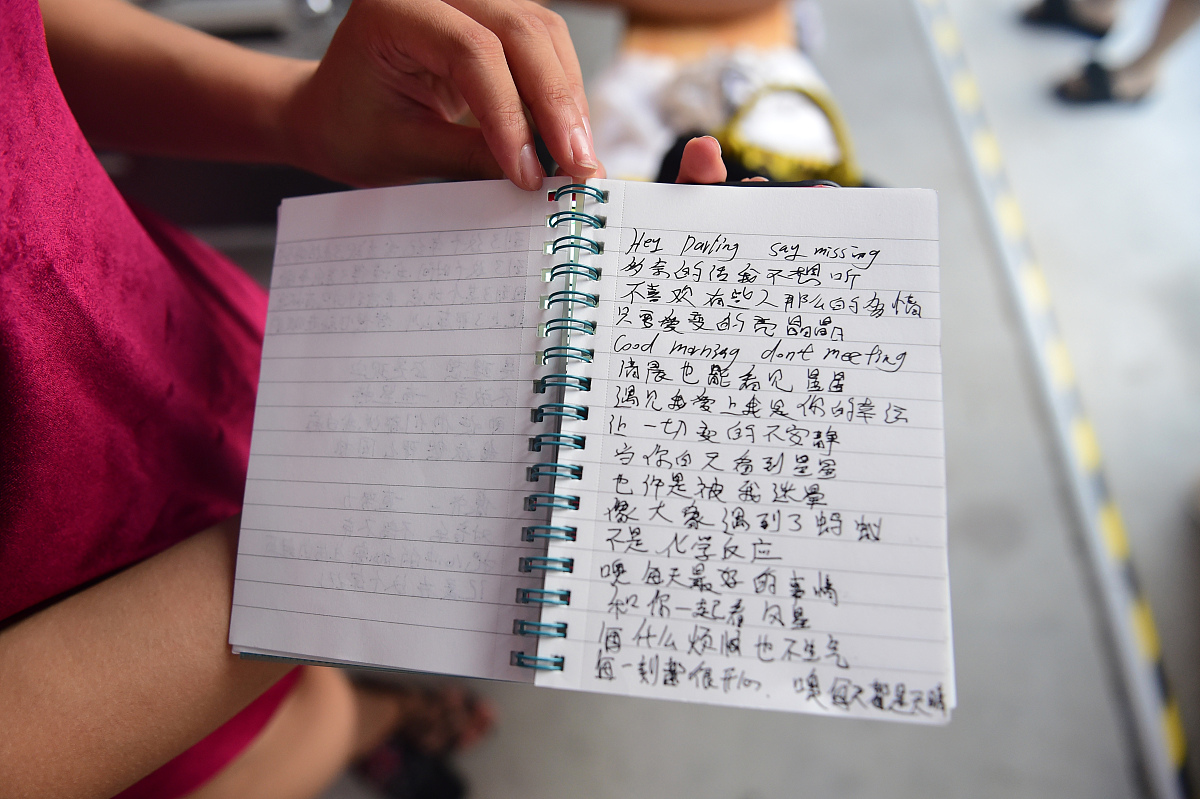 Hey Darling say missing
多余的话我不想听
不喜欢有些人那么的多情
只要爱变的亮晶晶
Good morning don't meeting
清晨也能看见星星
遇见我爱上我是你的幸运
让一切变的不安静
当你白天看到星星
也许是被我迷晕
像大象遇到了蚂蚁
不是化学反应
噢每天最好的事情
和你一起看风景
什么烦恼也不生气
每一刻都很开心. 噢每天都是天晴